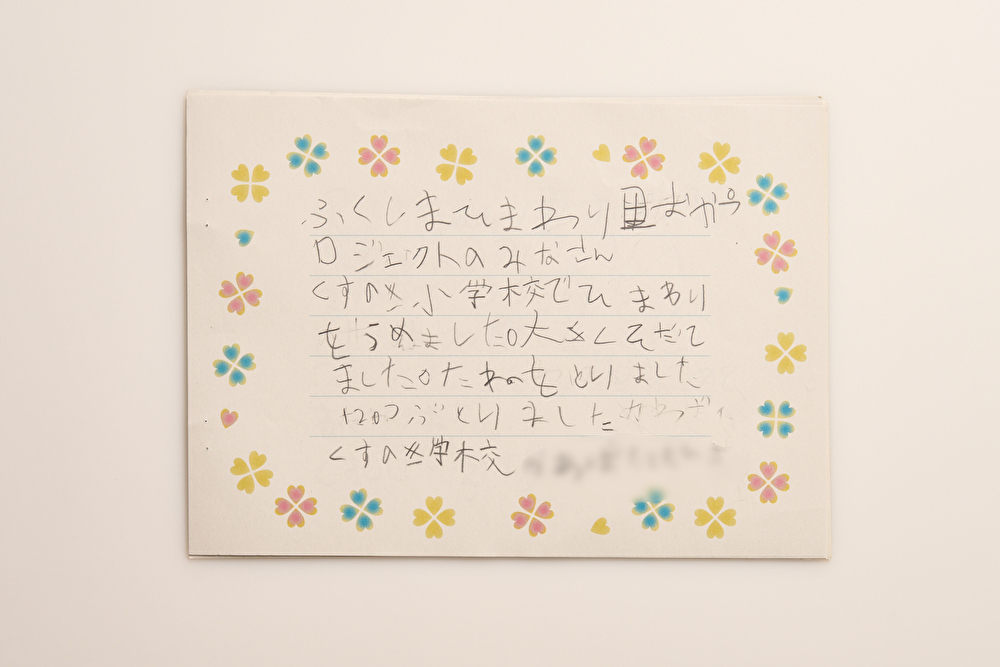 ふくしまひまわり里おやプ
ロジェクトのみなさん
くすのき小学校でひまわり
をうめました。大きくそだて
ました。たねをとりました
1200つぶとりました
くすのき学校